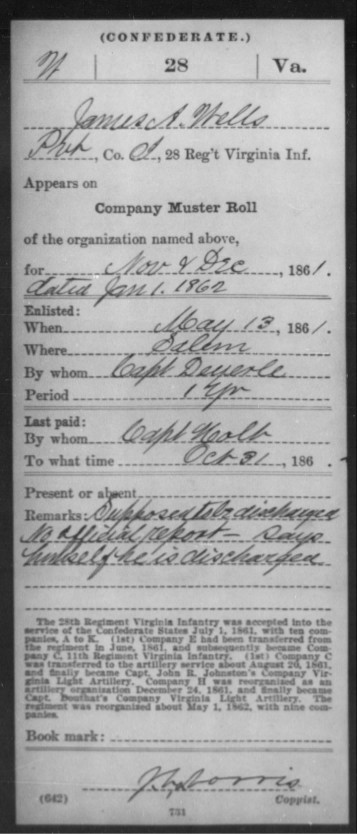 (CONFEDERATE.)
W | 28 | Va.
James A. Wells
Pvt, Co. I, 28 Reg't Virginia Inf.
Appears on
Company Muster Roll
of the organization named above,
for Nov & Dec, 1861.
dated Jan 1. 1862
Enlisted:
When May 13, 1861.
Where Salem
By whom Capt Deyerle
Period 1 Yr
Last paid:
By whom Capt Holt
To what time Oct 31, 186 .
Present or absent
Remarks: Supposed to be discharged
No official report - says
himself he is discharged
The 28th Regiment Virginia Infantry was accepted into the
service of the Confederate States July 1, 1861, with ten com-
panies, A to K. (1st) Company E had been transferred from
the regiment in June, 1861, and subsequently became Com-
pany C, 11th Regiment Virginia Infantry. (1st) Company C
was transferred to the artillery service about August 20, 1861,
and finally became Capt. John R. Johnston's Company Vir-
ginia Light Artillery. Company H was reorganized as an
artillery organization December 24, 1861, and finally became
Capt. Bouthat's Company Virginia Light Artillery. The
regiment was reorganized about May 1, 1862, with nine com-
panies.
Book mark:
Morris
(642) Copyist.
731